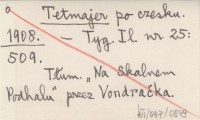 Tetmajer po czesku.
1908. — Tyg. Il. nr 25:
509.
Tłum. „Na Skalnem
Podhalu" przez Vondračka.